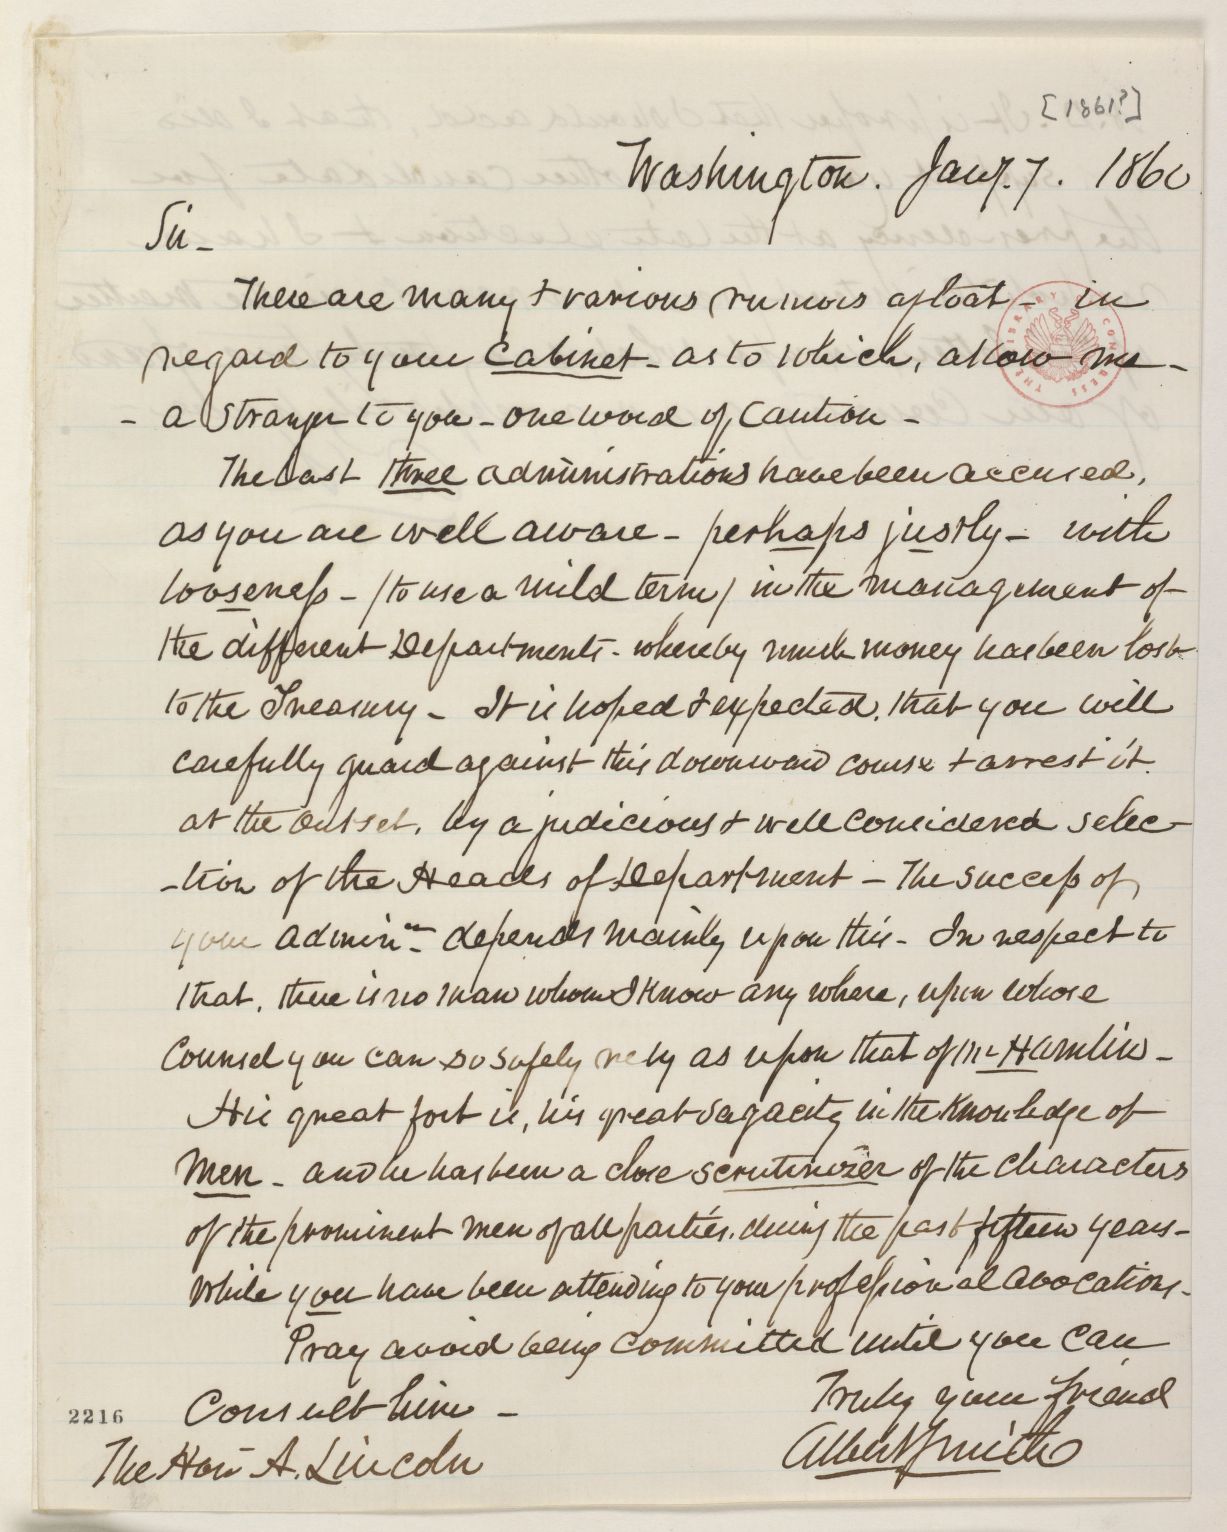 [1861?]
Washington. Jany. 7. 1860
Sir -
There are many & various rumors afloat - in
regard to your Cabinet - as to which, allow me -
- a stranger to you - one word of Caution -
The last three administrations have been accused,
as you are well aware - perhaps justly - with
looseness - (to use a mild term) in the management of
the different Departments - whereby much money has been lost
to the Treasury - It is hoped & expected, that you will
carefully guard against this downward course & arrest it
at the outset, by a judicious & well considered selec-
-tion of the Heads of Department - The success of
your Adminn. depends mainly upon this - In respect to
that, there is no man whom I know any where, upon whose
Counsel you can so safely rely as upon that of Mr Hamlin -
His great fort is, his great sagacity in the knowledge of
men - and he has been a close scrutinizer of the characters
of the prominent men of all parties, during the past fifteen years -
While you have been attending to your professional avocations -
Pray avoid being committed until you can
Consult him -
Truly your friend
Albert Smith
2216
The Hon A. Lincoln
THE LIBRARY CONGRESS